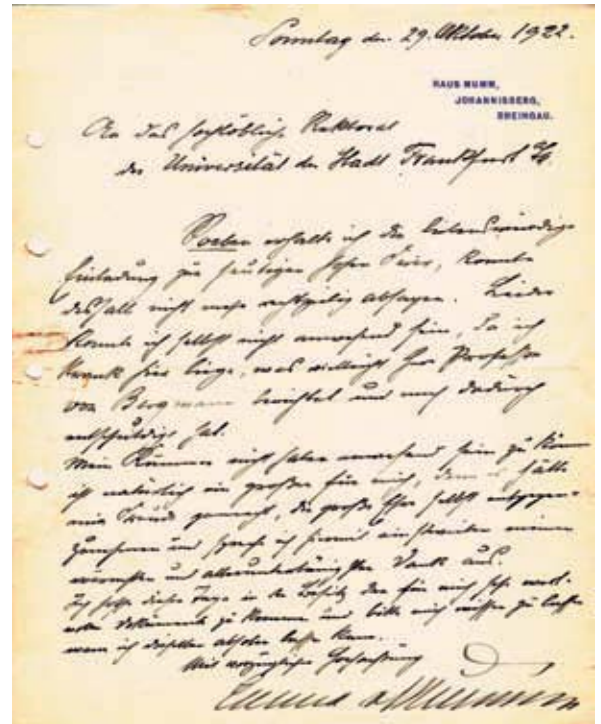 Sonntag den 29. Oktober 1922.
HAUS MUMM,
JOHANNISBERG,
RHEINGAU.
An das hochlöbliche Rektorat
der Universität der Stadt Frankfurt a/M.
Soeben erhalte ich die liebenswürdige
Einladung zur heutigen hohen Feier, konnte
deshalb nicht mehr rechtzeitig absagen. Leider
konnte ich selbst nicht anwesend sein, da ich
krank hier liege, was vielleicht Herr Professor
von Bergmann berichtet und mich dadurch
entschuldigt hat.
Mein Kummer nicht haben anwesend sein zu können
ist natürlich ein großer für mich, denn es hätte
mir Freude gemacht, die große Ehre selbst entgegen-
zunehmen und spreche ich hiermit einstweilen meinen
wärmsten und alleruntertänigsten Dank aus.
Ich hoffe dieser Tage in den Besitz des für mich sehr wert-
vollen Dokuments zu kommen und bitte mich wissen zu lassen
wann ich dasselbe abholen lassen kann.
Mit vorzüglicher Hochachtung
Emma v Mumm